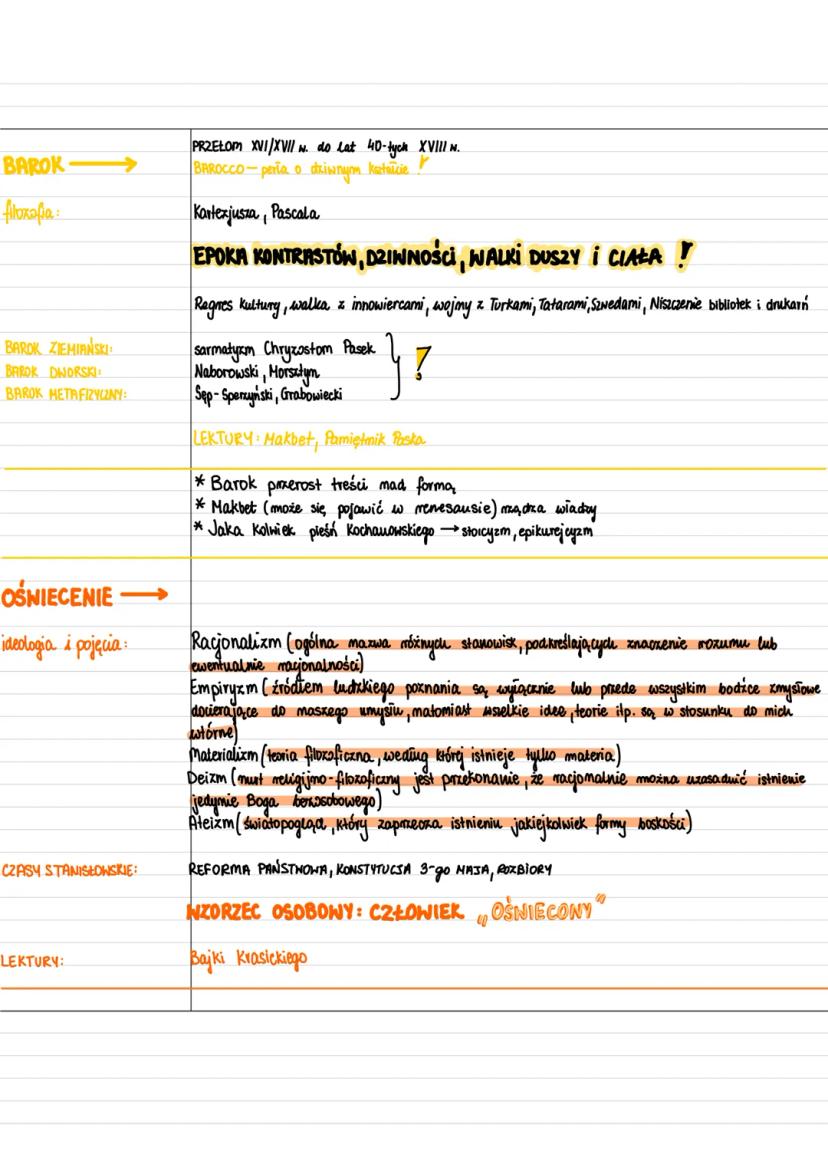 PRZEŁOM XVI/XVII w. do lat 40-tych XVIII w.
BAROK →
BAROCCO – perła o dziwnym kształcie !
filozofia:
Kartezjusza, Pascala
EPOKA KONTRASTÓW, DZIWNOŚCI, WALKI DUSZY i CIAŁA !
Regres kultury, walka z innowiercami, wojny z Turkami, Tatarami, Szwedami, Niszczenie bibliotek i drukarń
BAROK ZIEMIAŃSKI: sarmatyzm Chryzostom Pasek
BAROK DWORSKI: Naborowski, Morsztyn
BAROK METAFIZYCZNY: Sęp-Sperzyński, Grabowiecki
!
LEKTURY: Makbet, Pamiętnik Paska
* Barok przerost treści nad formą
* Makbet (może się pojawić w renesansie) rządza władzy
* Jaka kolwiek pieśń Kochanowskiego → stoicyzm, epikurejcyzm
OŚWIECENIE →
ideologia i pojęcia: Racjonalizm (ogólna nazwa różnych stanowisk, podkreślających znaczenie rozumu lub
ewentualnie racjonalności)
Empiryzm (źródłem ludzkiego poznania są wyłącznie lub przede wszystkim bodźce zmysłowe
docierające do naszego umysłu, natomiast wszelkie idee, teorie itp. są w stosunku do nich
wtórne)
Materializm (teoria filozoficzna, według której istnieje tylko materia)
Deizm (nurt religijno-filozoficzny jest przekonanie, że racjonalnie można uzasadnić istnienie
jedynie Boga bezosobowego)
Ateizm (światopogląd, który zaprzecza istnieniu jakiejkolwiek formy boskości)
CZASY STANISŁOWSKIE: REFORMA PAŃSTWOWA, KONSTYTUCJA 3-go MAJA, ROZBIORY
WZORZEC OSOBOWY: CZŁOWIEK „OŚWIECONY”
LEKTURY: Bajki Krasickiego